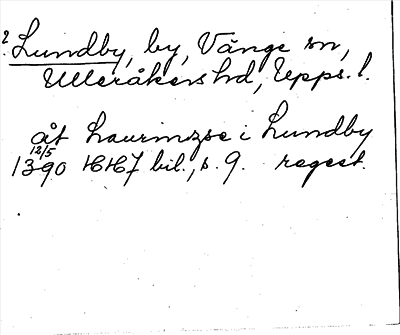 ? Lundby, by, Vänge sn,
Ulleråkers hd, Upps. l.
åt Laurinzse i Lundby
12/5
1390 HH7 bil., s. 9. regest.